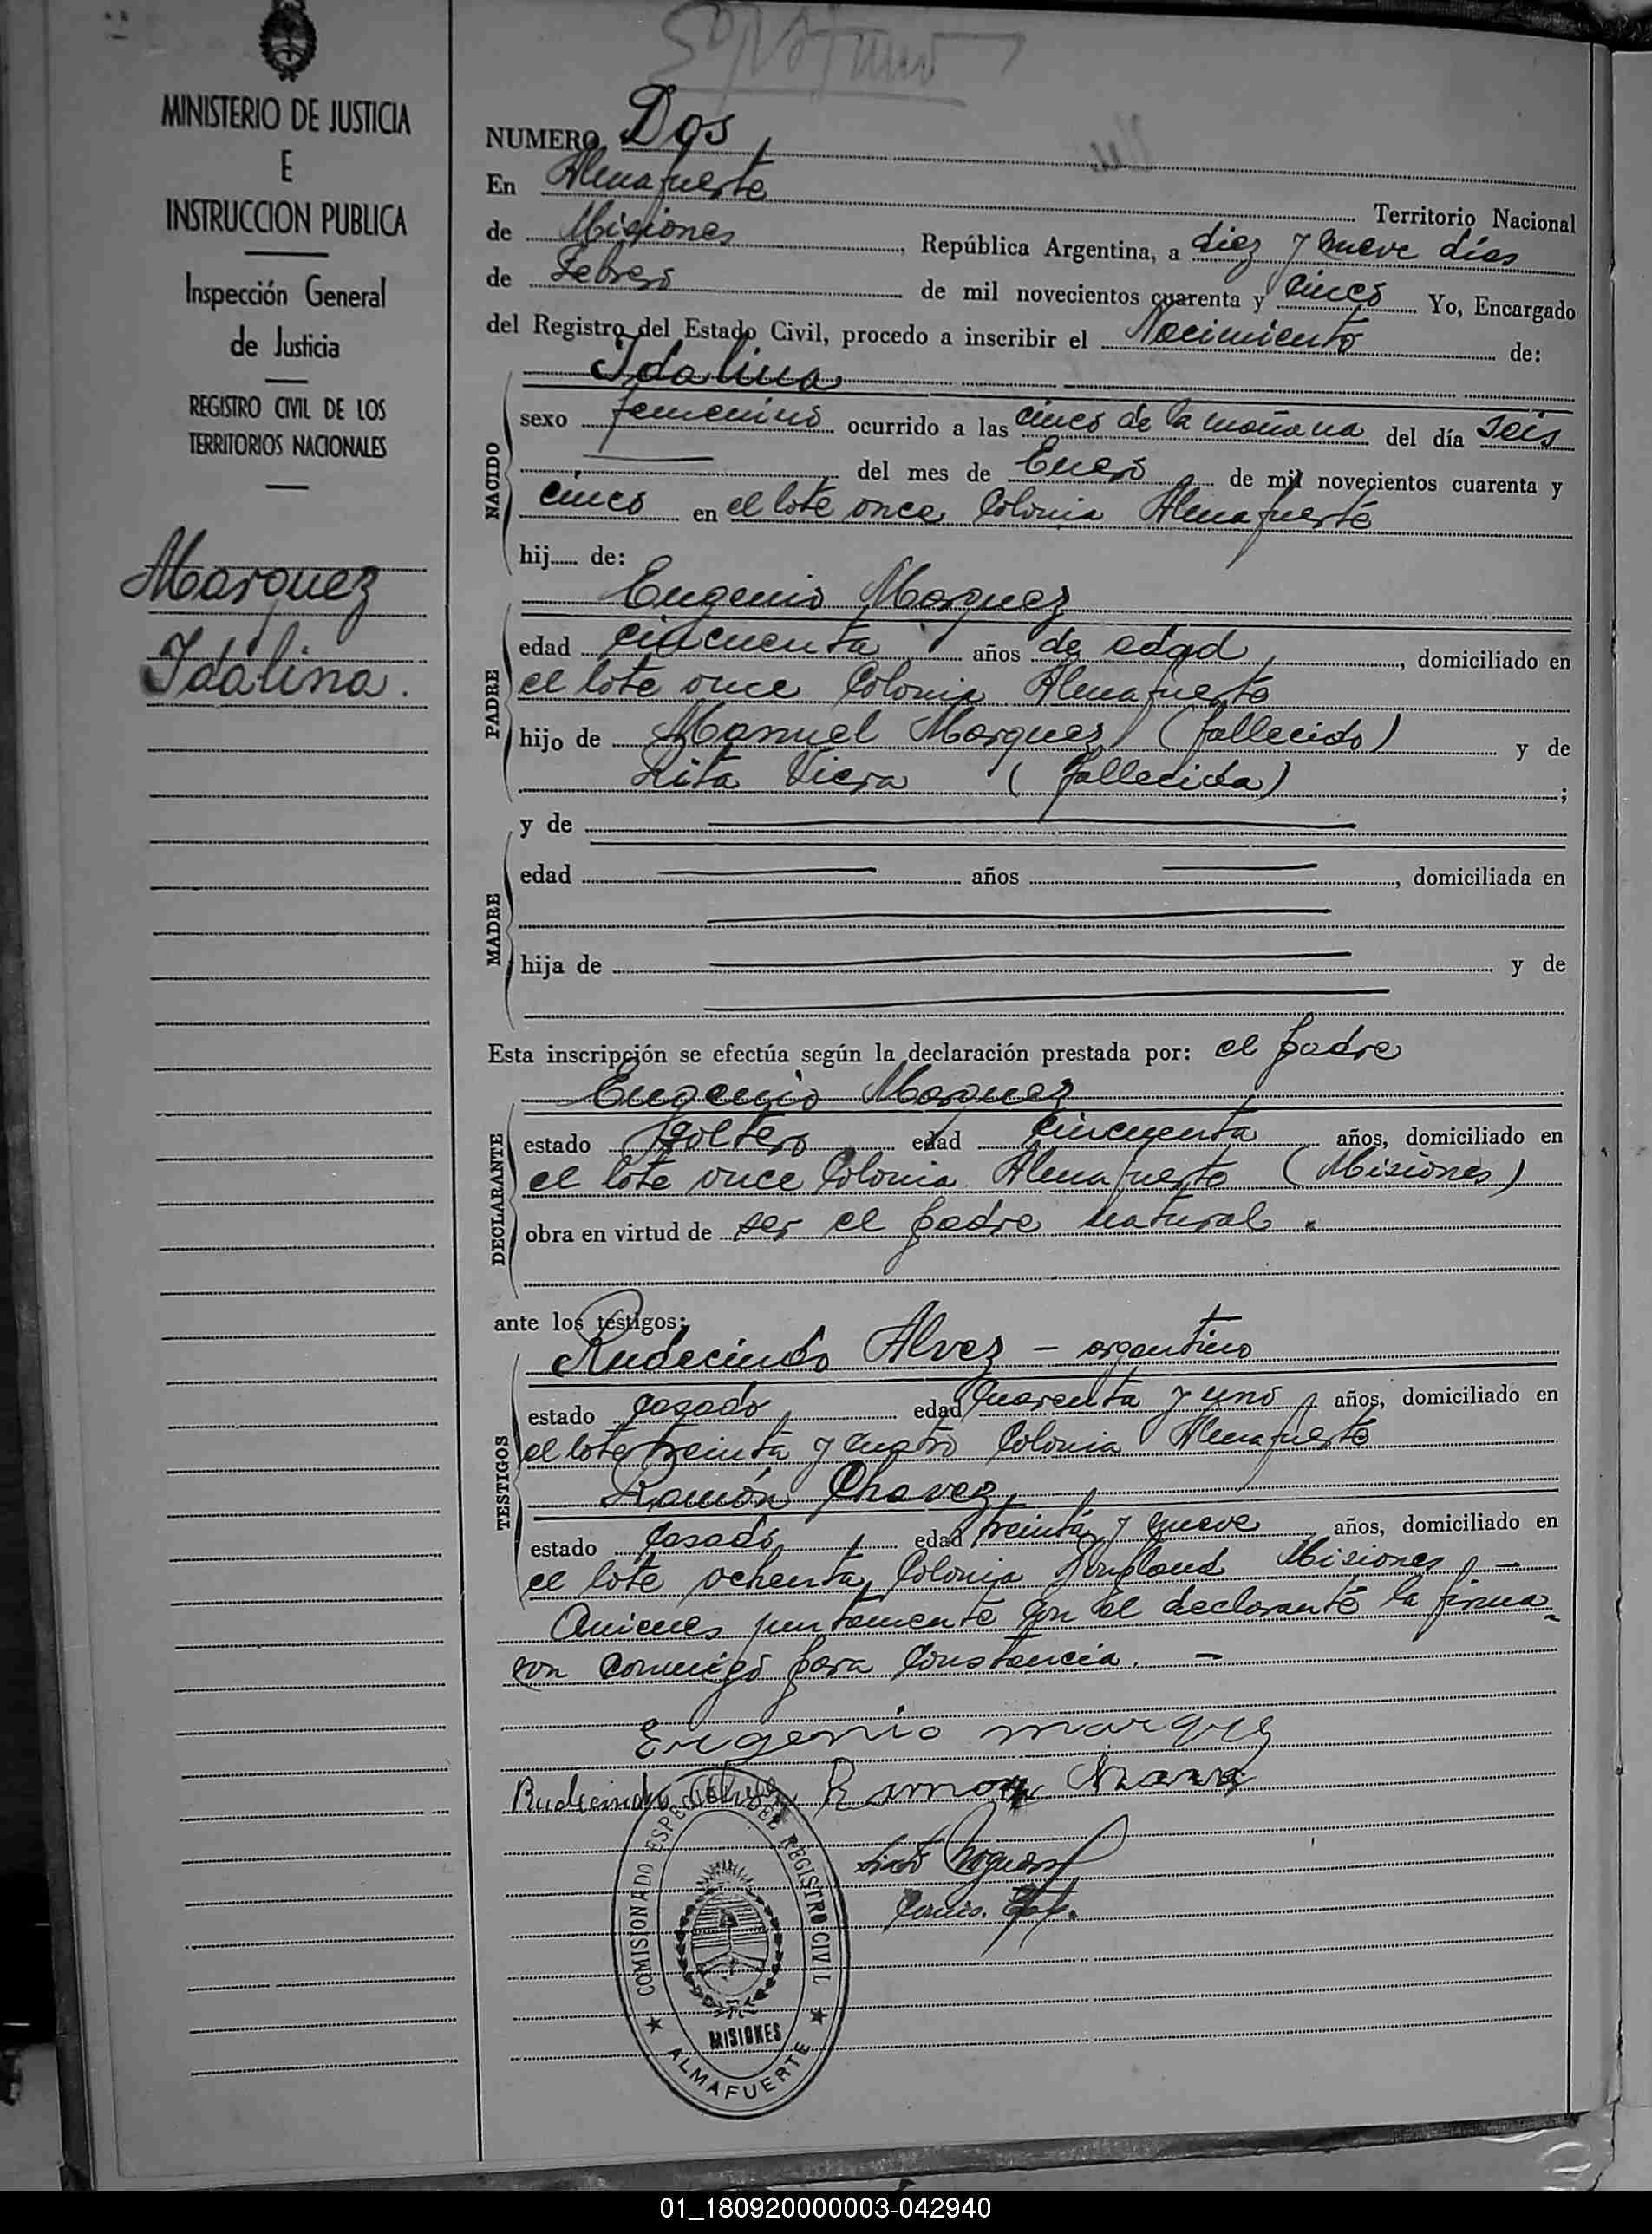 MINISTERIO DE JUSTICIA
E
INSTRUCCION PUBLICA
Inspección General
de Justicia
REGISTRO CIVIL DE LOS
TERRITORIOS NACIONALES
Marquez
Idalina.
NUMERO Dos
En Almafuerte Territorio Nacional
de Misiones, República Argentina, a diez y nueve días
de Febrero de mil novecientos cuarenta y cinco Yo, Encargado
del Registro del Estado Civil, procedo a inscribir el Nacimiento de:
Idalina
NACIDO
sexo femenino ocurrido a las cinco de la mañana del día Seis
del mes de Enero de mil novecientos cuarenta y
cinco en el lote once Colonia Almafuerte
hij de:
Eugenio Marquez
PADRE
edad cincuenta años de edad, domiciliado en
el lote once Colonia Almafuerte
hijo de Manuel Marquez (fallecido) y de
Rita Viera (fallecida);
y de
MADRE
edad años, domiciliada en
hija de y de
Esta inscripción se efectúa según la declaración prestada por: el padre
Eugenio Marquez
DECLARANTE
estado Soltero edad cincuenta años, domiciliado en
el lote once Colonia Almafuerte (Misiones)
obra en virtud de ser el padre natural.
ante los testigos:
Rudecindo Alvez - argentino
TESTIGOS
estado casado, edad Cuarenta y uno, años, domiciliado en
el lote treinta y cuatro Colonia Almafuerte
Ramón Chavez,
estado Casado, edad treinta y nueve años, domiciliado en
el lote ochenta, Colonia Bonpland Misiones, -
Quienes juntamente con el declarante la firma-
ron conmigo para constancia. -
Eugenio marquez
Rudecindo Alvez Ramon Chavez
Comis.
COMISIONADO ESPECIAL DEL REGISTRO CIVIL
MISIONES
ALMAFUERTE
01_180920000003-042940